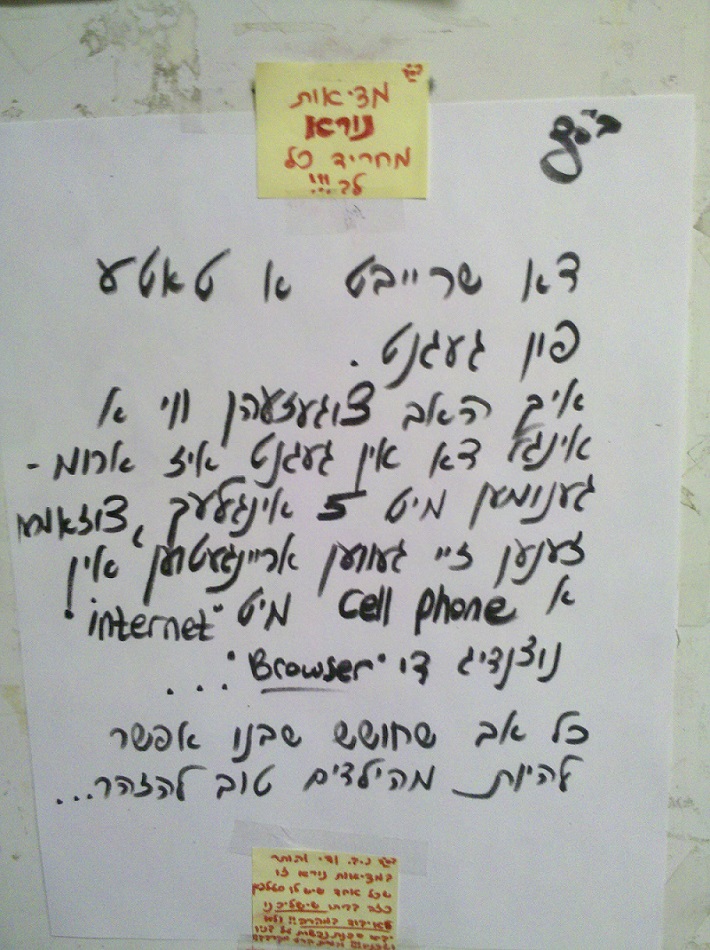 מציאות
נורא
מחריד כל
לב!!!
דא שרייבט א טאטע
פון געגנט.
איך האב צוגעזעהן ווי א
אינגל דא אין געגנט איז ארומ-
גענומען מיט 5 אינגלעך, צוזאמען
זענען זיי געווען אריינגעטוהן אין
א cell phone מיט "internet"
נוצנדיג די "Browser"...
כל אב שחושש שבנו אפשר
להיות מהילדים טוב להזהר...
במציאות נורא זו
שכל אחד שיש לו